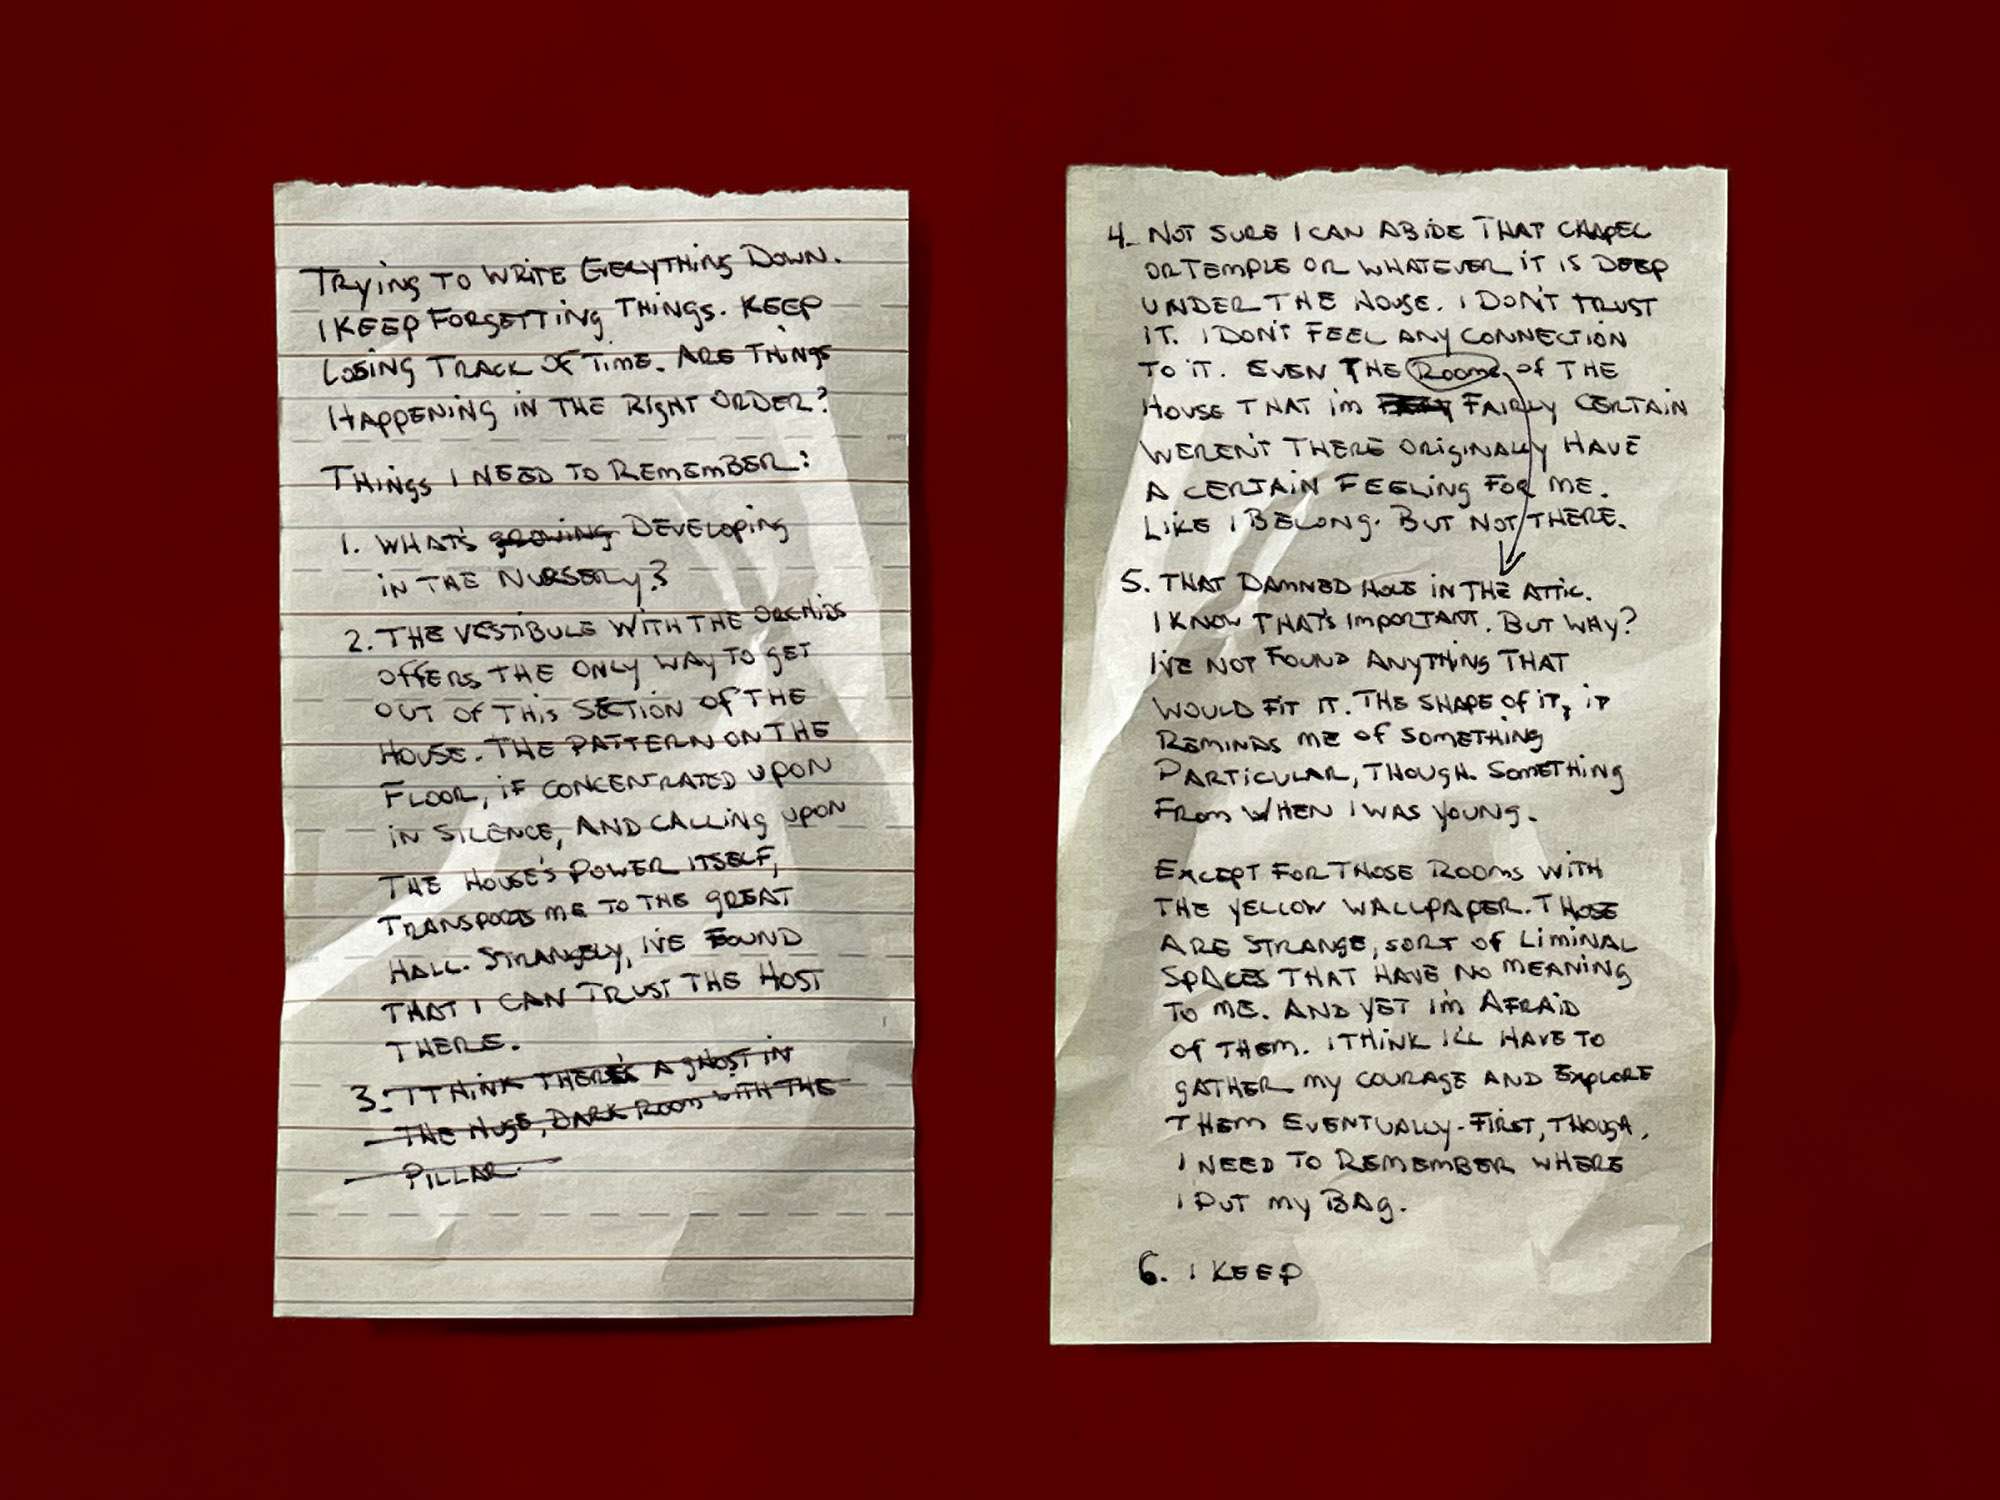 TRYING TO WRITE EVERYTHING DOWN.
I KEEP FORGETTING THINGS. KEEP
LOSING TRACK OF TIME. ARE THINGS
HAPPENING IN THE RIGHT ORDER?
THINGS I NEED TO REMEMBER:
1. WHAT'S GROWING DEVELOPING
IN THE NURSERY?
2. THE VESTIBULE WITH THE ORCHIDS
OFFERS THE ONLY WAY TO GET
OUT OF THIS SECTION OF THE
HOUSE. THE PATTERN ON THE
FLOOR, IF CONCENTRATED UPON
IN SILENCE, AND CALLING UPON
THE HOUSE'S POWER ITSELF,
TRANSPORTS ME TO THE GREAT
HALL. STRANGELY, I'VE FOUND
THAT I CAN TRUST THE HOST
THERE.
3. I THINK THERE'S A GHOST IN
THE HUGE, DARK ROOM WITH THE
PILLAR.
4. NOT SURE I CAN ABIDE THAT CHAPEL
OR TEMPLE OR WHATEVER IT IS DEEP
UNDER THE HOUSE. I DON'T TRUST
IT. I DON'T FEEL ANY CONNECTION
TO IT. EVEN THE ROOMS OF THE
HOUSE THAT I'M FAIRLY CERTAIN
WEREN'T THERE ORIGINALLY HAVE
A CERTAIN FEELING FOR ME.
LIKE I BELONG. BUT NOT THERE.
5. THAT DAMNED HOLE IN THE ATTIC.
I KNOW THAT'S IMPORTANT. BUT WHY?
I'VE NOT FOUND ANYTHING THAT
WOULD FIT IT. THE SHAPE OF IT, IT
REMINDS ME OF SOMETHING
PARTICULAR, THOUGH. SOMETHING
FROM WHEN I WAS YOUNG.
EXCEPT FOR THOSE ROOMS WITH
THE YELLOW WALLPAPER. THOSE
ARE STRANGE, SORT OF LIMINAL
SPACES THAT HAVE NO MEANING
TO ME. AND YET I'M AFRAID
OF THEM. I THINK I'LL HAVE TO
GATHER MY COURAGE AND EXPLORE
THEM EVENTUALLY. FIRST, THOUGH,
I NEED TO REMEMBER WHERE
I PUT MY BAG.
6. I KEEP